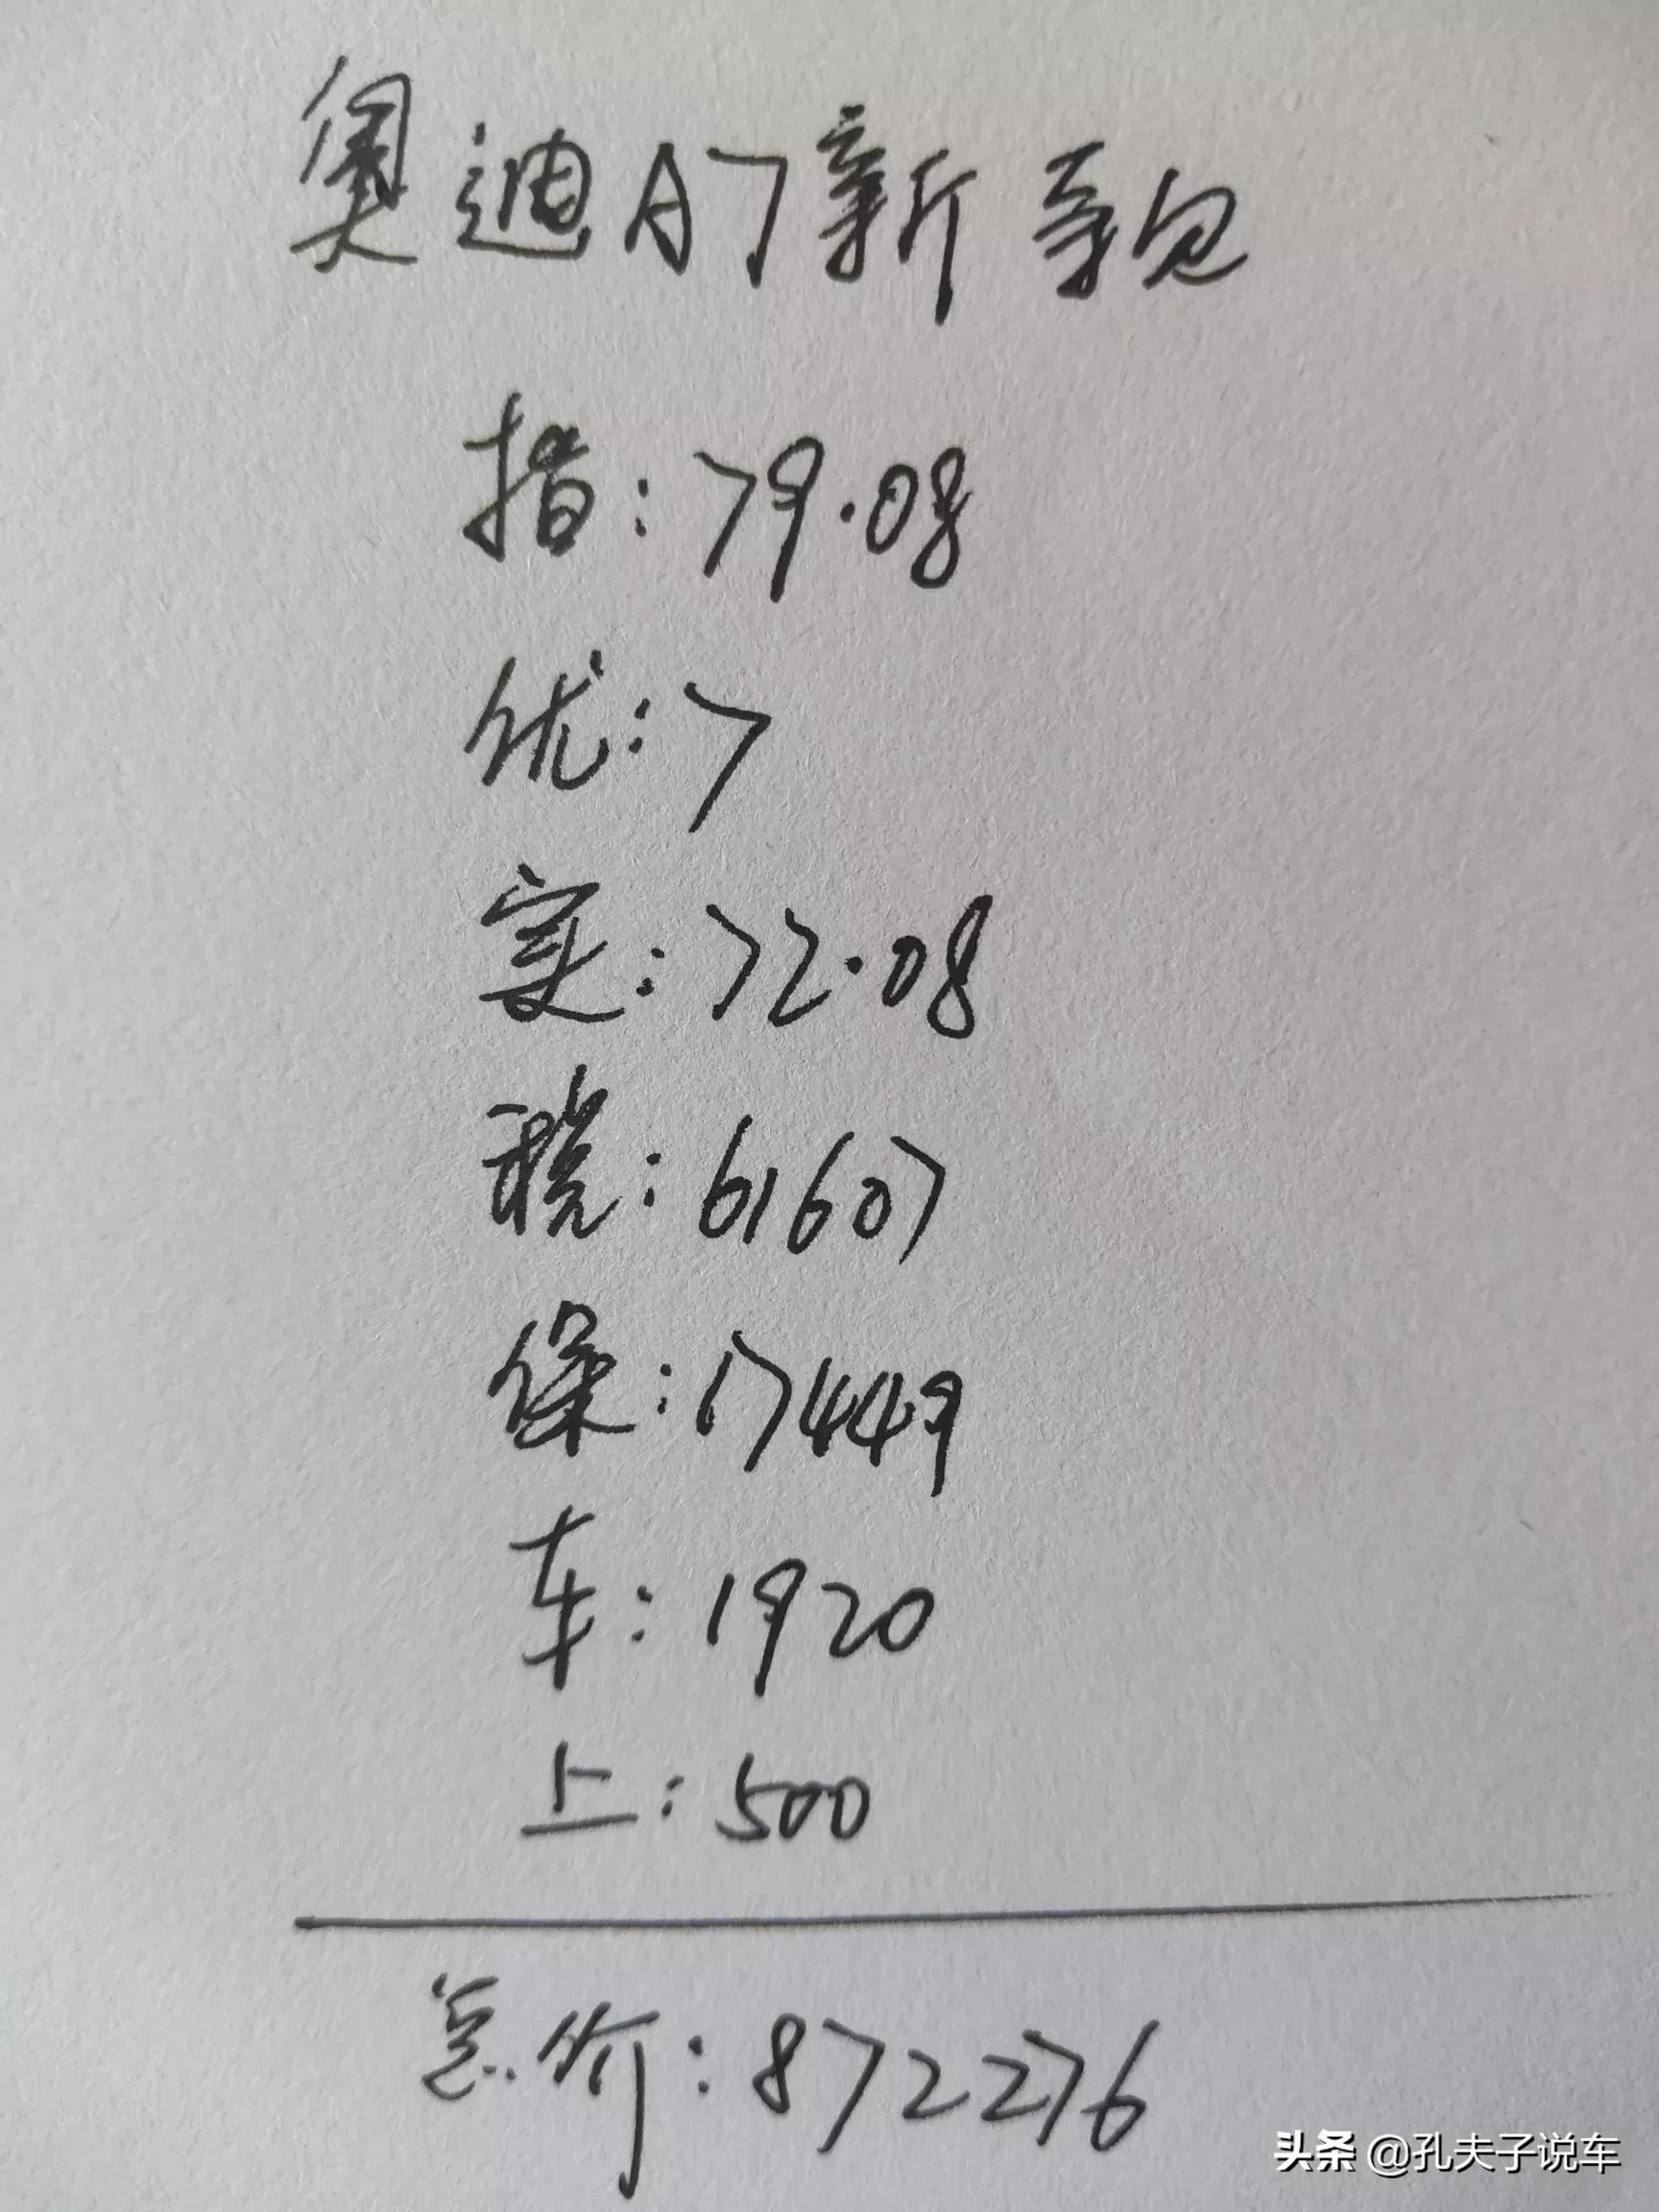 奥迪A7新款
指：79.08
优：7
实：72.08
税：61607
保：17449
车：1920
上：500
总价：872276
头条 @孔夫子说车